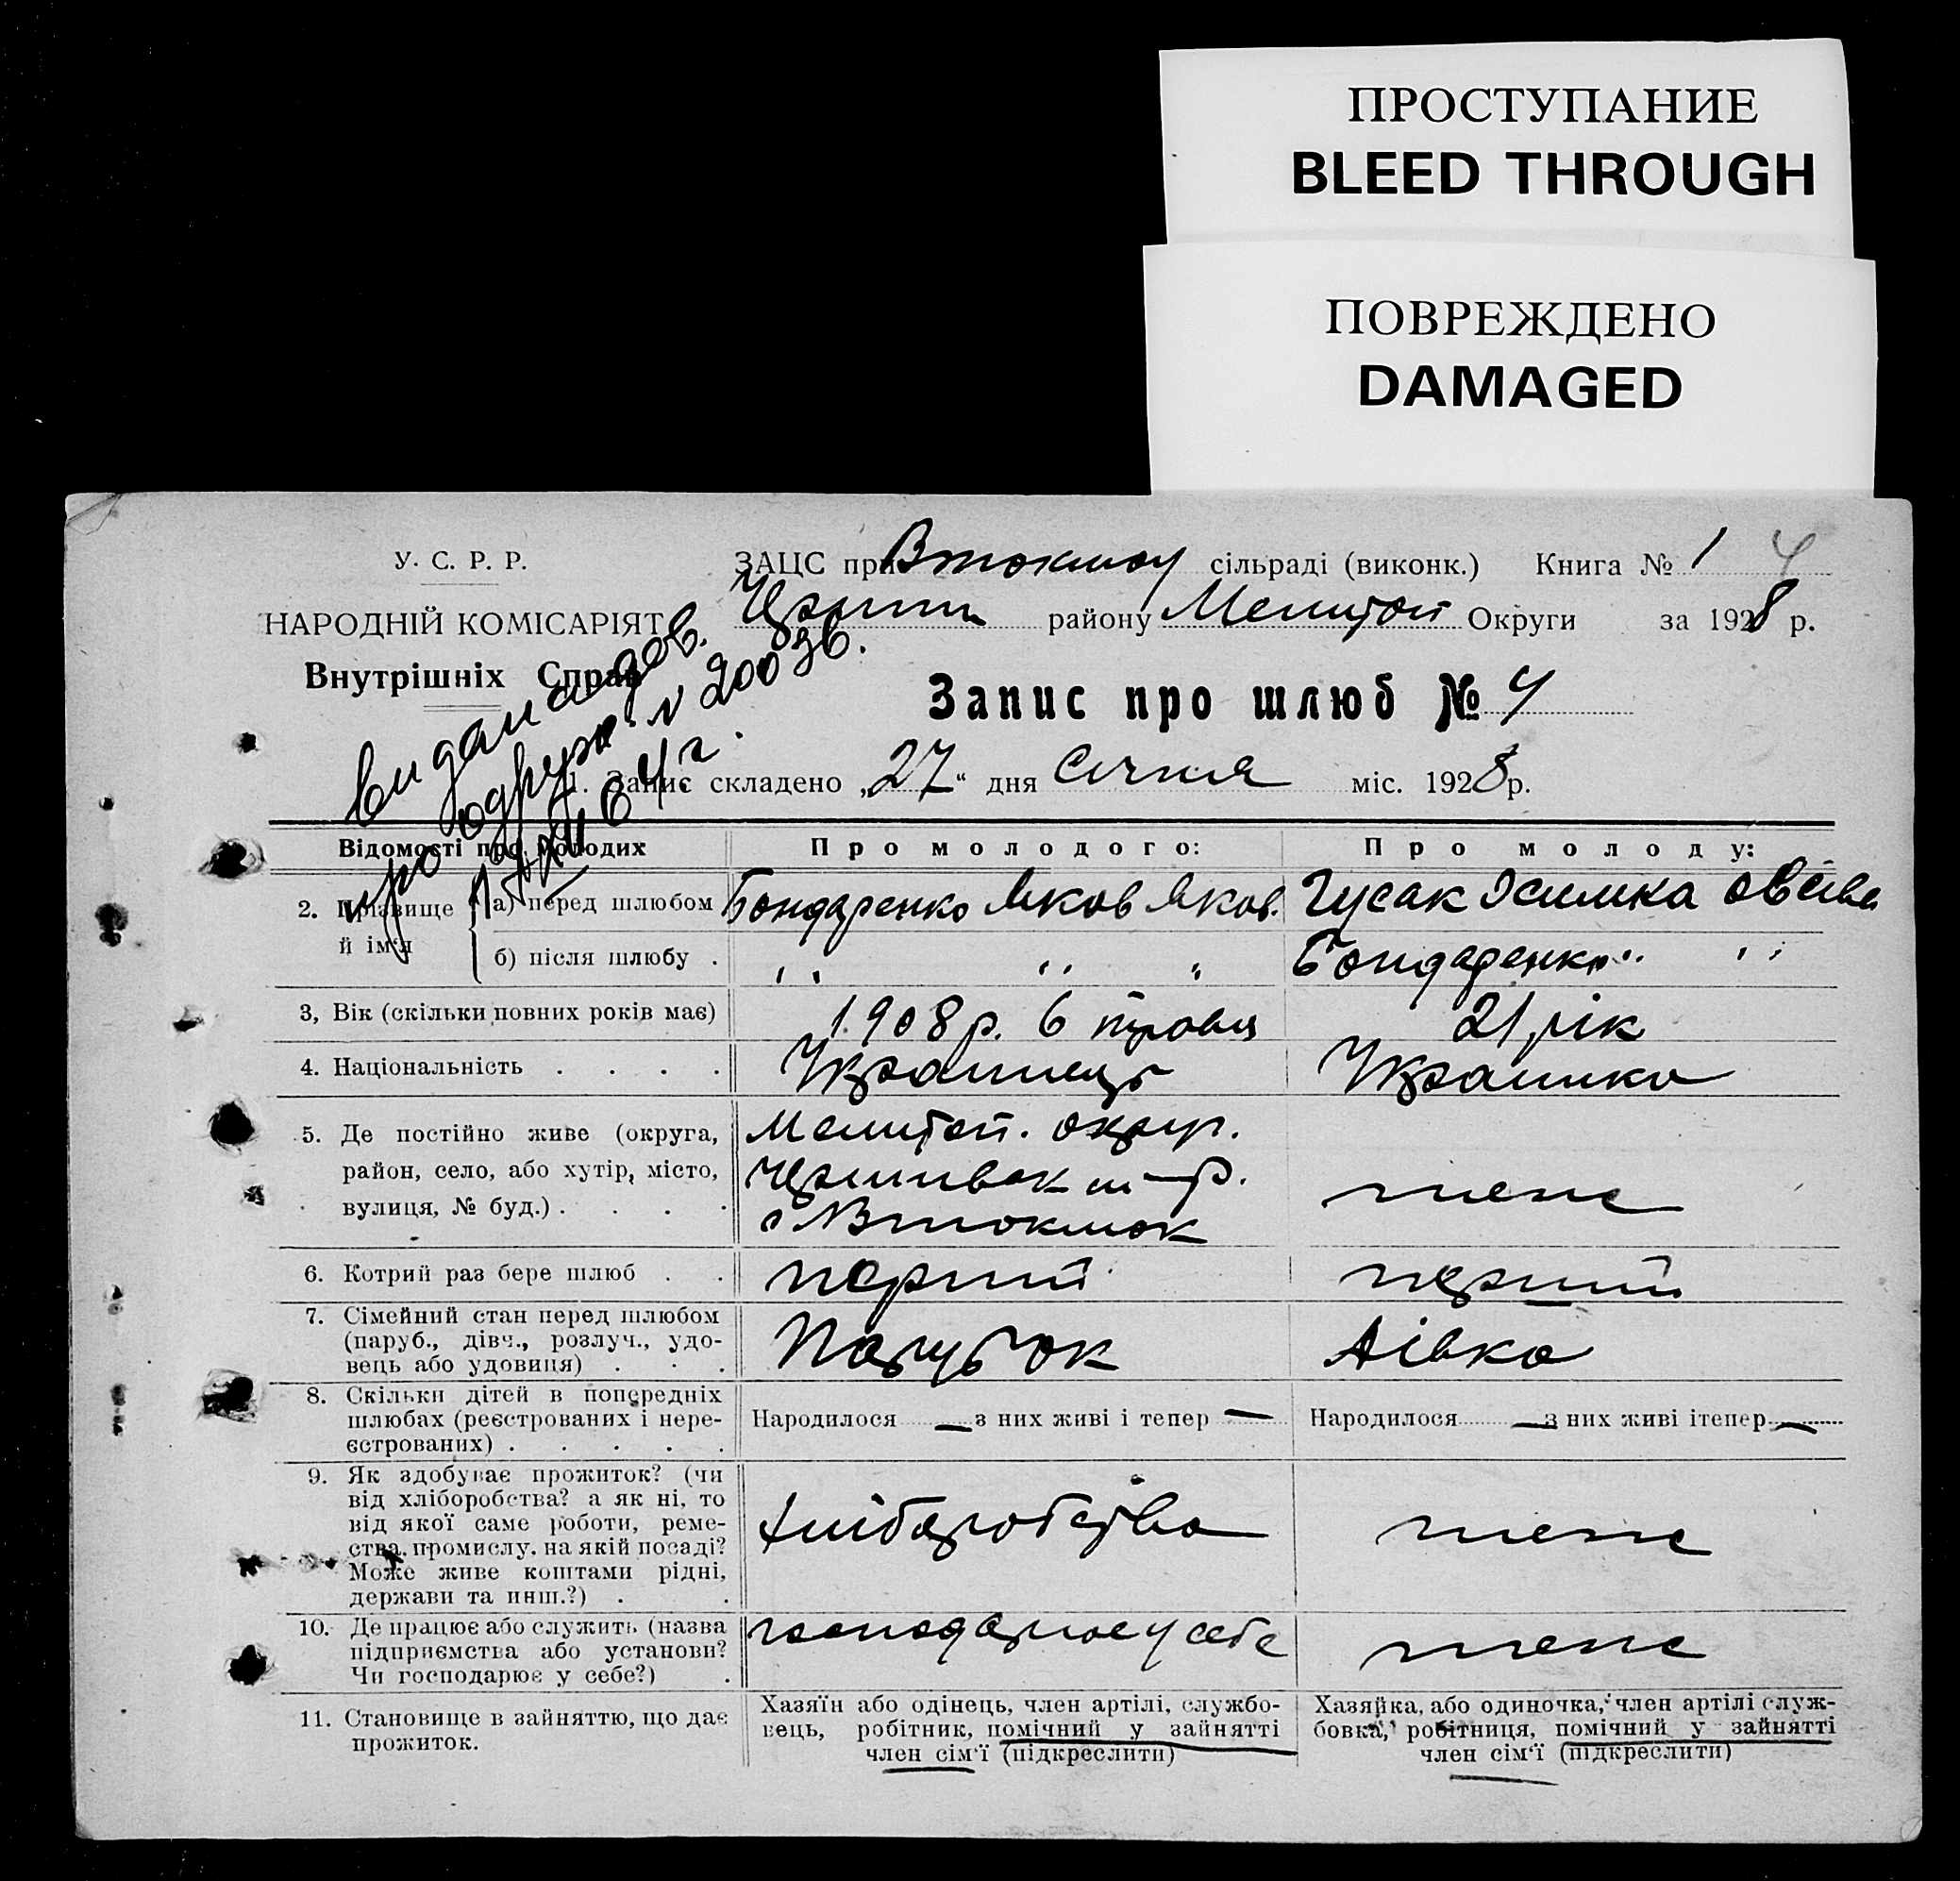 ПРОСТУПАНИЕ
BLEED THROUGH
ПОВРЕЖДЕНО
DAMAGED
У. С. Р. Р.
ЗАЦС при Втокмоу сільраді (виконк.) Книга № 1 4
НАРОДНІЙ КОМІСАРІЯТ
району Мелитоп Округи за 1928 р.
Внутрішніх Справ
видана
про N 200
Запис про шлюб № 4
1. Запис складено „27“ дня Січня міс. 1928 р.
Відомості про молодих
Про молодого:
Про молоду:
2. Прізвище й ім‘я
а) перед шлюбом
Бондаренко Яков Яков.
Гусак
б) після шлюбу .
,, ,, ,,
Бондаренко ,, ,,
3, Вік (скільки повних років має)
1908 р. 6 травц
21 рік
4. Національність . . . .
Українець
Українка
5. Де постійно живе (округа,
район, село, або хутір, місто,
вулиця, № буд.) . . . .
Мелитоп. округ.
р.
Втокмок
теже
6. Котрий раз бере шлюб . .
перший
перший
7. Сімейний стан перед шлюбом
(паруб., дівч., розлуч., удо-
вець або удовиця) . . .
Парубок
Дівка
8. Скільки дітей в попередніх
шлюбах (реєстрованих і нере-
єстрованих) . . . . .
Народилося — з них живі і тепер —
Народилося — з них живі ітепер —
9. Як здобуває прожиток? (чи
від хліборобства? а як ні, то
від якої саме роботи, реме-
ства, промислу, на якій посаді?
Може живе коштами рідні,
держави та инш.?) . .
хліборобства
теже
10. Де працює або служить (назва
підприємства або установи?
Чи господарює у себе?) .
господарює у себе
теже
11. Становище в зайняттю, що дає
прожиток.
Хазяїн або одінець, член артілі, службо-
вець, робітник, помічний у зайнятті
член сім‘ї (підкреслити)
Хазяйка, або одиночка, член артілі служ-
бовка, робітниця, помічний у зайнятті
член сім‘ї (підкреслити)